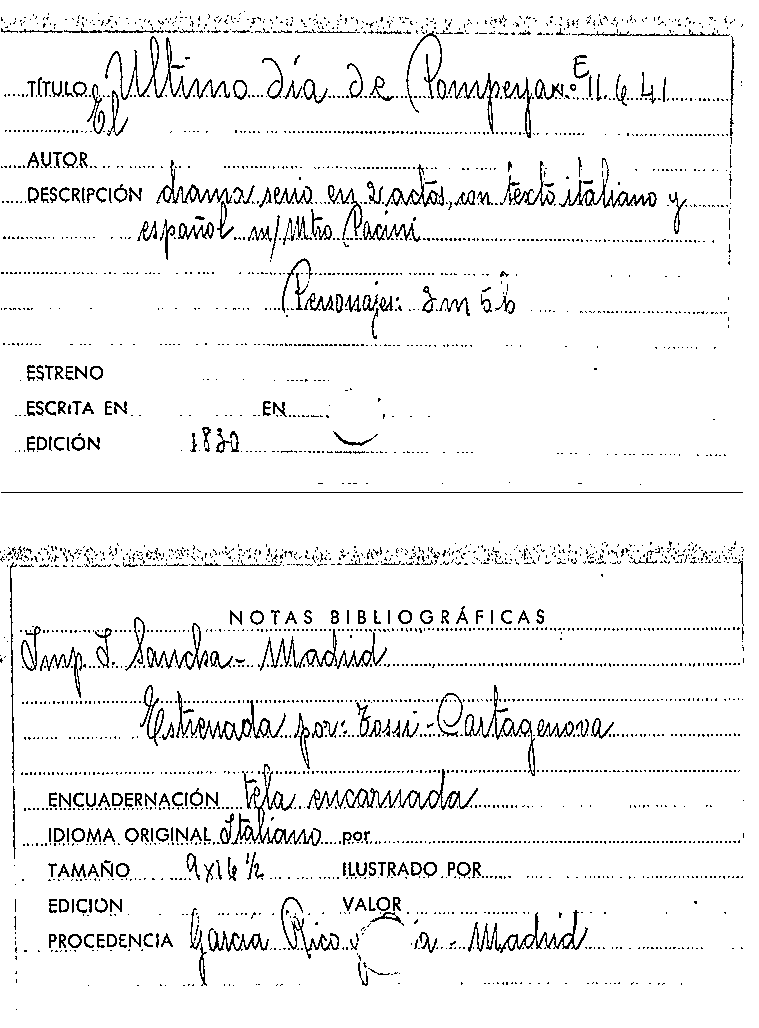 TÍTULO Ultimo día de Pompeya N.º E 11.641
El
AUTOR
DESCRIPCIÓN drama serio en 2 actos, con texto italiano y
español m/ Mtro Pacini
Personajes: 3m 5h
ESTRENO
ESCRITA EN EN
EDICIÓN 1830
NOTAS BIBLIOGRÁFICAS
Imp. I. Sancha - Madrid
Estrenada por: Tossi - Cartagenova
ENCUADERNACIÓN tela encarnada
IDIOMA ORIGINAL Italiano por
TAMAÑO 9x16 ½ ILUSTRADO POR
EDICIÓN VALOR
PROCEDENCIA García Rico y - Madrid